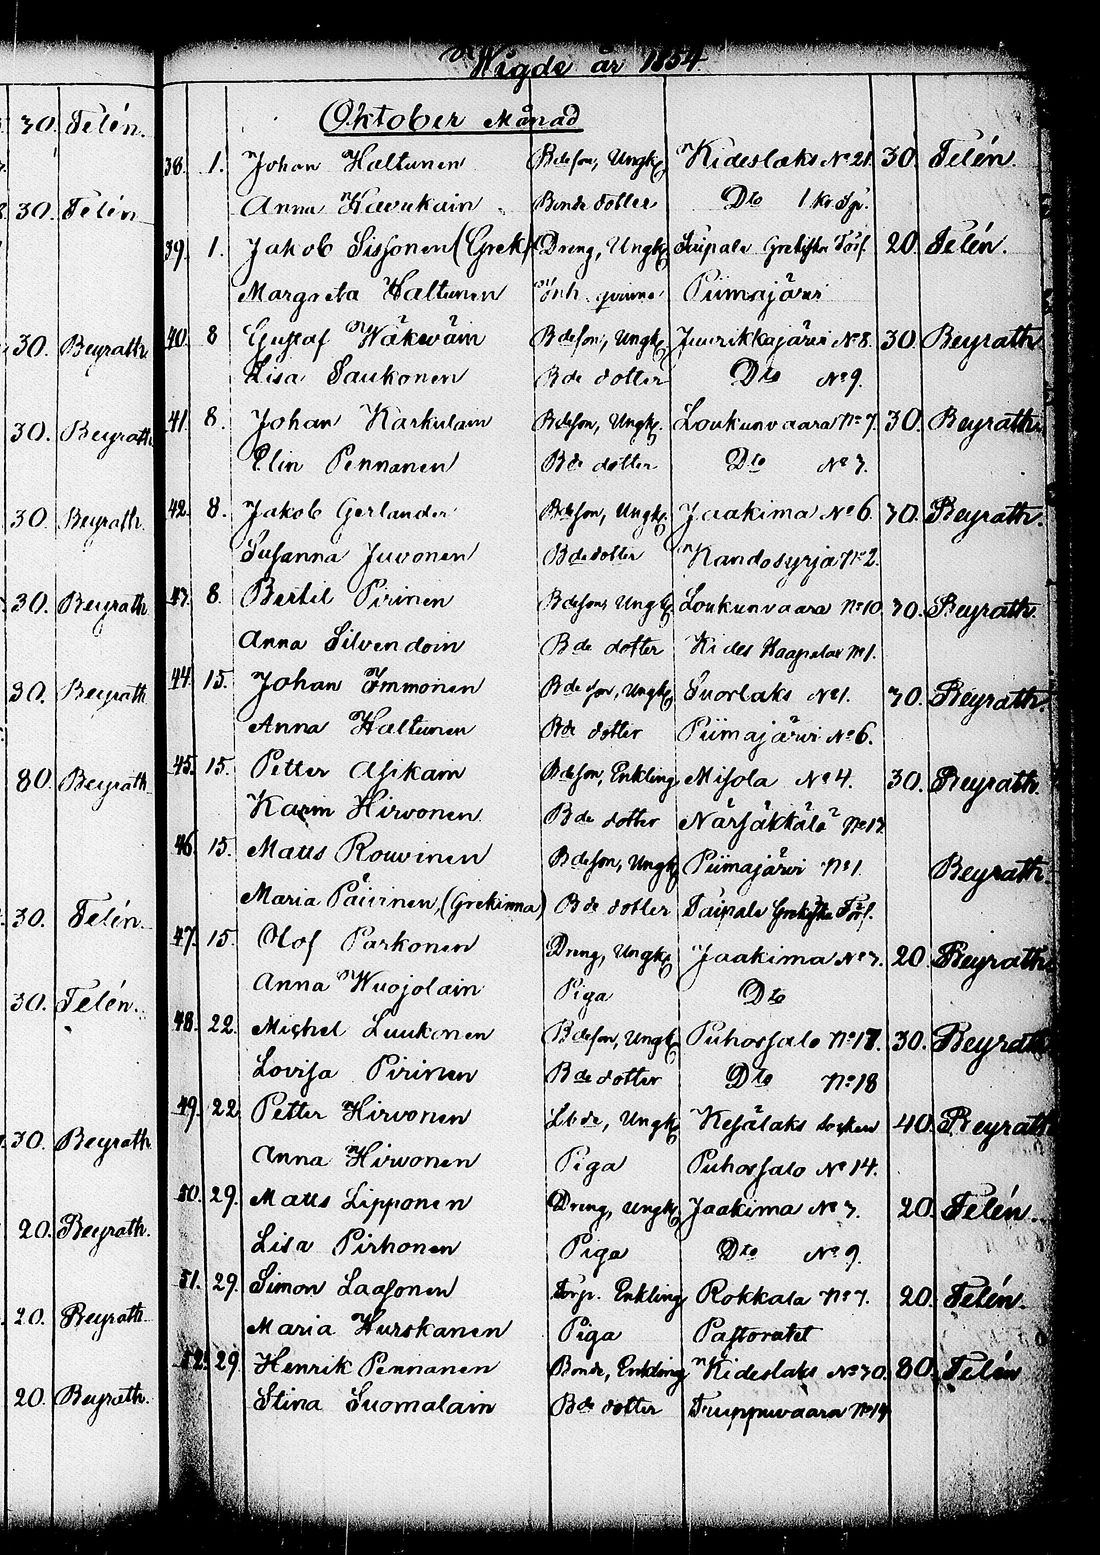 Wigde år 1854
Oktober Månad
38. 1. Johan Haltunen Bdeson, Ungk Kideslaks No 21. 30. Telén.
Anna Havukain Bonde dotter Dto 1 kr
39. 1. Jakob Sissonen (Grek) Dreng, Ungk Taipale Grekiska Förs. 20. Telén.
Margreta Haltunen Inh. qvinna Piimajärvi
40. 8 Gustaf Wäkeväin Bdeson, Ungk Juurikkajärvi No 8. 30. Beyrath
Lisa Saukonen Bde dotter Dto No 9.
41. 8. Johan Karkulain Bdeson, Ungk. Loukunvaara No 7. 30. Beyrath
Elin Pennanen Bde dotter Dto No 7.
42. 8. Jakob Gerlander Bdeson, Ungk. Jaakima No 6. 30. Beyrath.
Susanna Juvonen Bde dotter Kandosyrja No 2.
43. 8. Bertil Pirinen Bdeson, Ungk Loukunvaara No 10 30. Beyrath.
Anna Silvendoin Bde dotter Kides Haapalax No 1.
44. 15. Johan Immonen Bde son, Ungk Suorlaks No 1. 30. Beyrath.
Anna Haltunen Bde dotter Piimajärvi No 6.
45. 15. Petter Asikain Bdeson, Enkling Misola No 4. 30. Beyrath.
Karin Hirvonen Bde dotter Närsäkkälä No 17
46. 15. Matts Rouvinen Bdeson, Ungk Piimajärvi No 1. Beyrath.
Maria Päivinen, (Grekinna) Bde dotter Taipale Grekiska Förs.
47. 15. Olof Parkonen Dreng, Ungk Jaakima No 7. 20. Beyrath.
Anna Wuojolain Piga Dto
48. 22. Michel Luukonen Bdeson, Ungk Puhossalo No 17. 30. Beyrath
Lovisa Pirinen Bde dotter Dto No 18
49. 22. Petter Hirvonen Lbde, Ungk Kesälaks Socken 40. Beyrath
Anna Hirvonen Piga Puhossalo No 14.
50. 29. Matts Lipponen Dreng, Ungk Jaakima No 7. 20. Telén.
Lisa Pirhonen Piga Dto No 9.
51. 29. Simon Laasonen Torp. Enkling Rokkala No 7. 20. Telén.
Maria Hurskanen Piga Pastoratet
52. 29. Henrik Pennanen Bonde, Enkling Kideslaks No 30. 80. Telén
Stina Suomalain Bde dotter Truppuvaara No 14
30. Telén.
30. Telén
30. Beyrath
30. Beyrath
30. Beyrath.
30. Beyrath
30. Beyrath
80. Beyrath
30. Telén.
30. Telén.
30. Beyrath
20. Beyrath.
20. Beyrath
20. Beyrath.